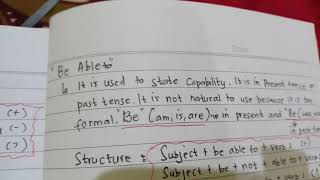 "Be Able to"
It is used to state capability. It is in present tense or
past tense. It is not natural to use because it is too
formal. "Be" (am, is, are) in present and "Be (was
in past
Structure : Subject + be able to + verb 1 (+)
Subject + be + not + able to + verb
(+)
(-)
(?)